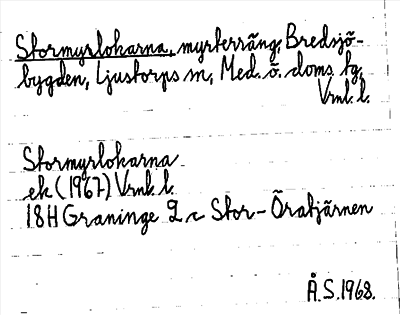 Stormyrlokarna, myrterräng, Bredsjö-
bygden, Ljustorps sn, Med. ö. doms. tg,
Vrnl. l.
Stormyrlokarna
ek (1967) Vrnl. l.
18H Graninge 9 c Stor-Öratjärnen
Å.S. 1968.